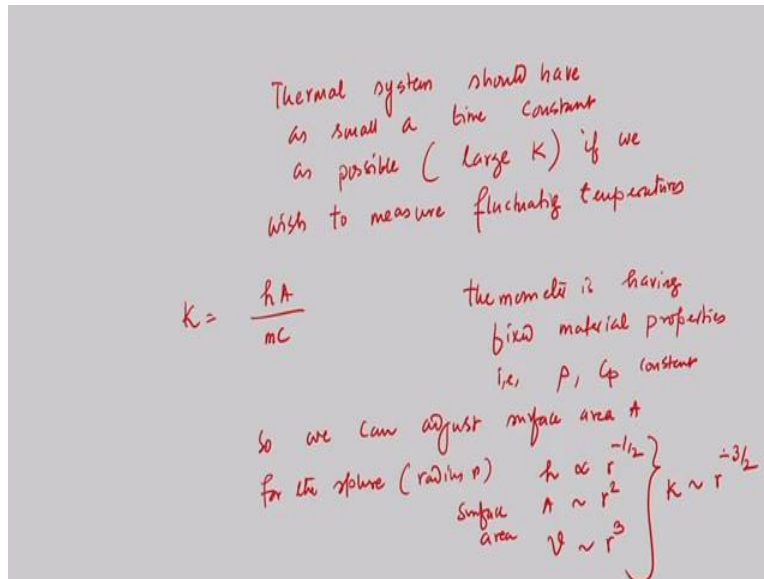 Thermal system should have
as small a time constant
as possible ( large K ) if we
wish to measure fluctuating temperatures
K = hA / mC
thermometer is having
fixed material properties
i,e, ρ, Cp constant
So we can adjust surface area A
for the sphere (radius r) h ∝ r^-1/2
surface area A ~ r^2
V ~ r^3
} K ~ r^-3/2